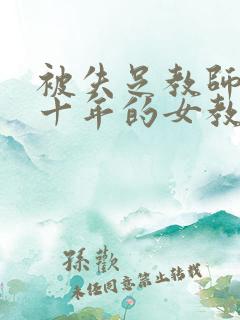 被失足教师
十年的女教
孙欢
未经同意禁止转载